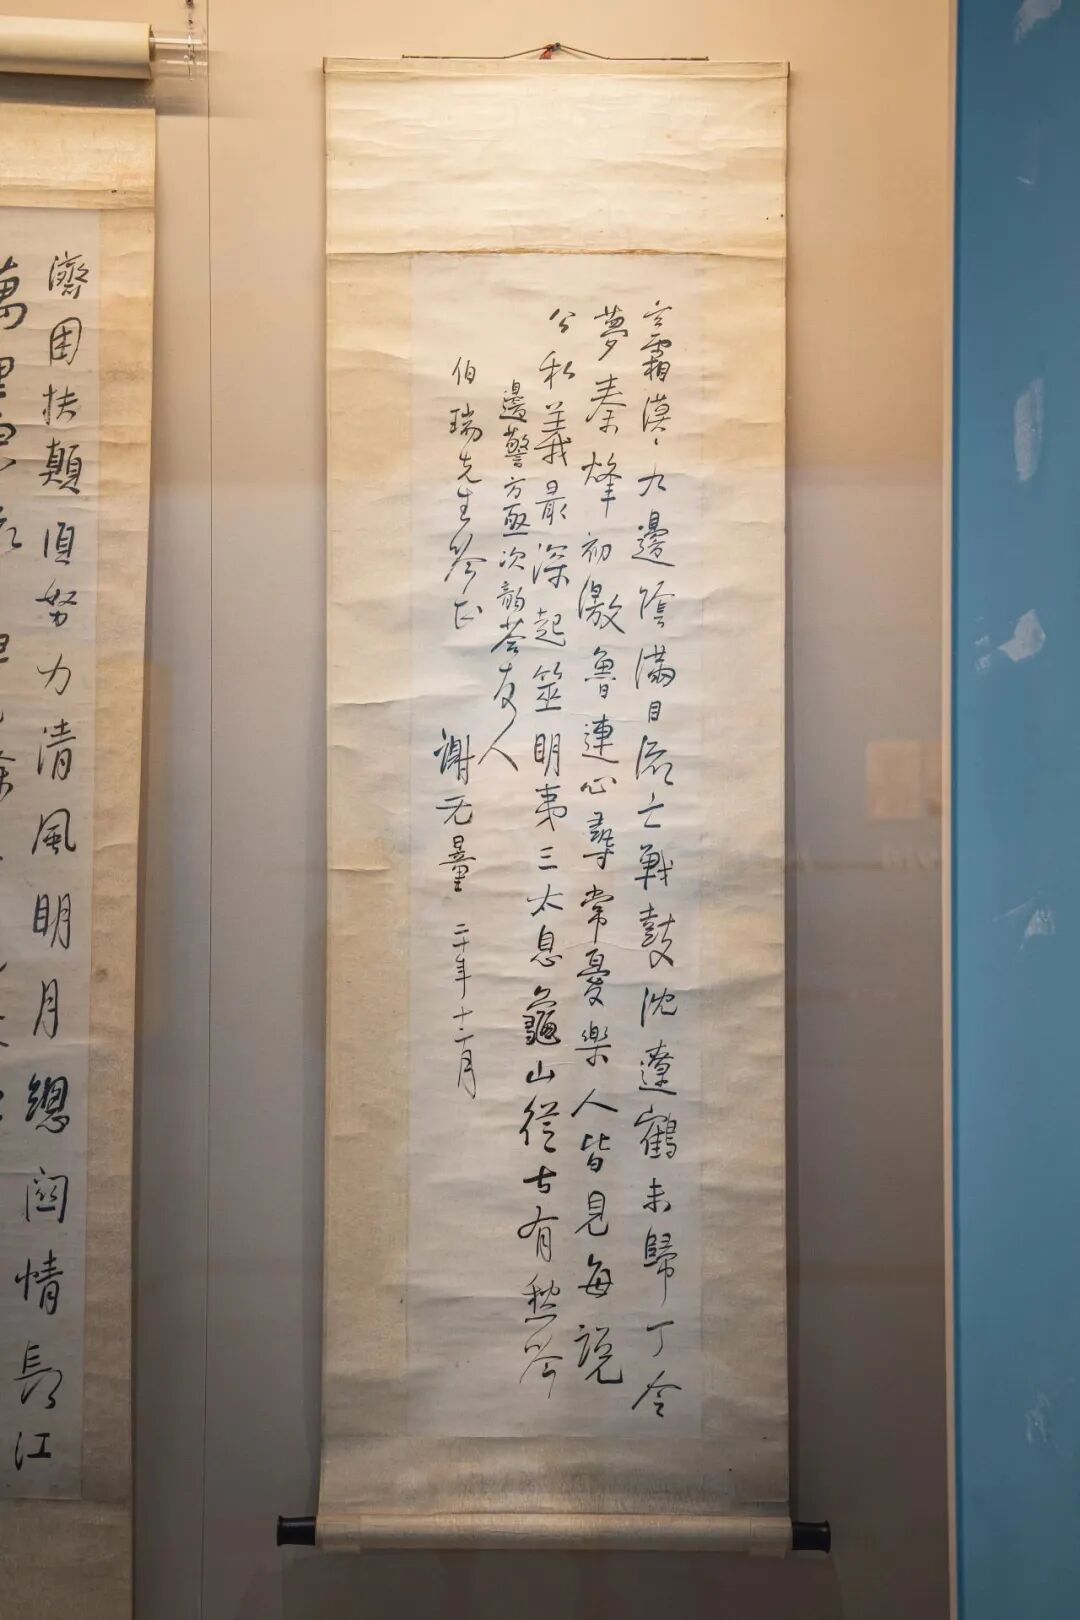 玄霜漠〻九邊陰滿目流亡戰鼓沈遼鶴未歸丁令
夢秦烽初激魯連心尋常憂樂人皆見每說
公私義最深起筮明夷三太息龜山從古有愁吟
邊警方亟次韵荅友人
伯瑞先生吟正 謝无量 二十年十二月
濟困扶顛須努力清風明月總關情長江
萬里